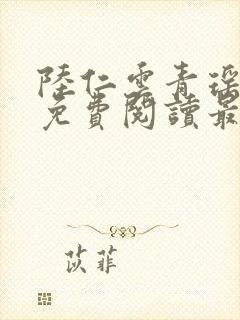 陸仁雲青瑤
免費閱讀最
苡菲